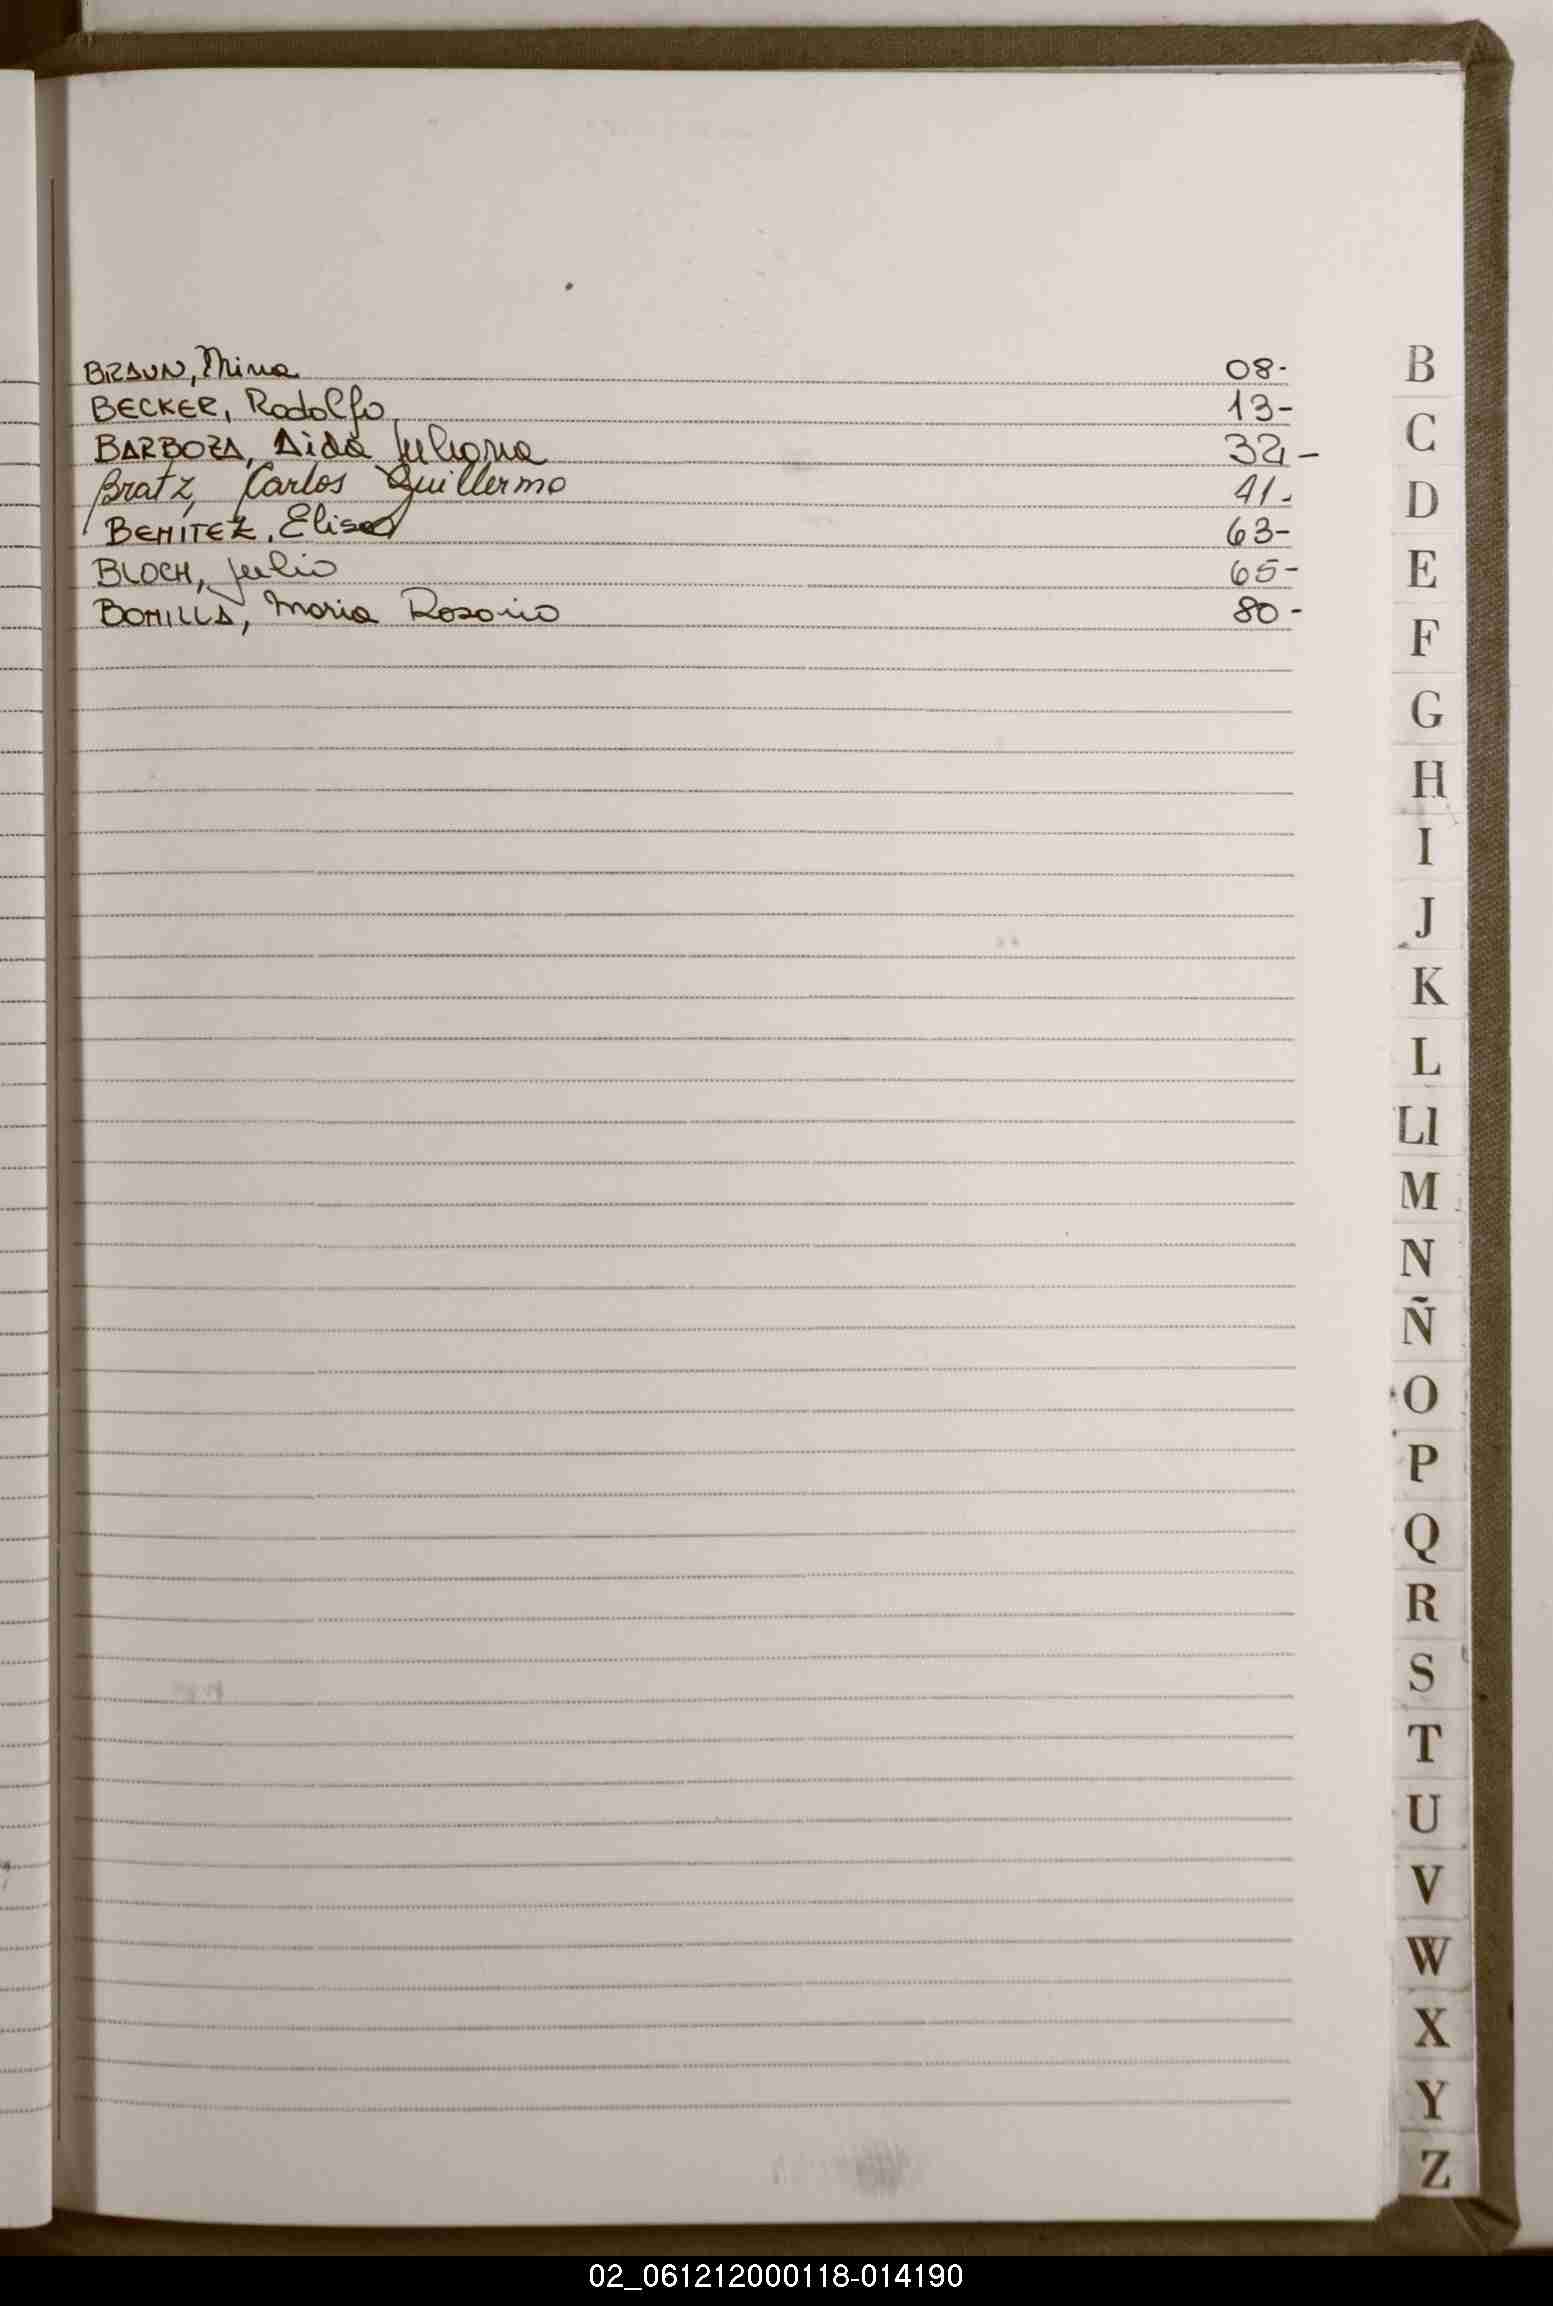 BRAUN, Mina 08-
BECKER, Rodolfo 13-
BARBOZA, Aida Juliana 32-
Bratz, Carlos Guillermo 41-
BENÍTEZ, Elisa 63-
BLOCH, Julio 65-
BONILLA, Maria Rosario 80-
B
C
D
E
F
G
H
I
J
K
L
Ll
M
N
Ñ
O
P
Q
R
S
T
U
V
W
X
Y
Z
02_061212000118-014190